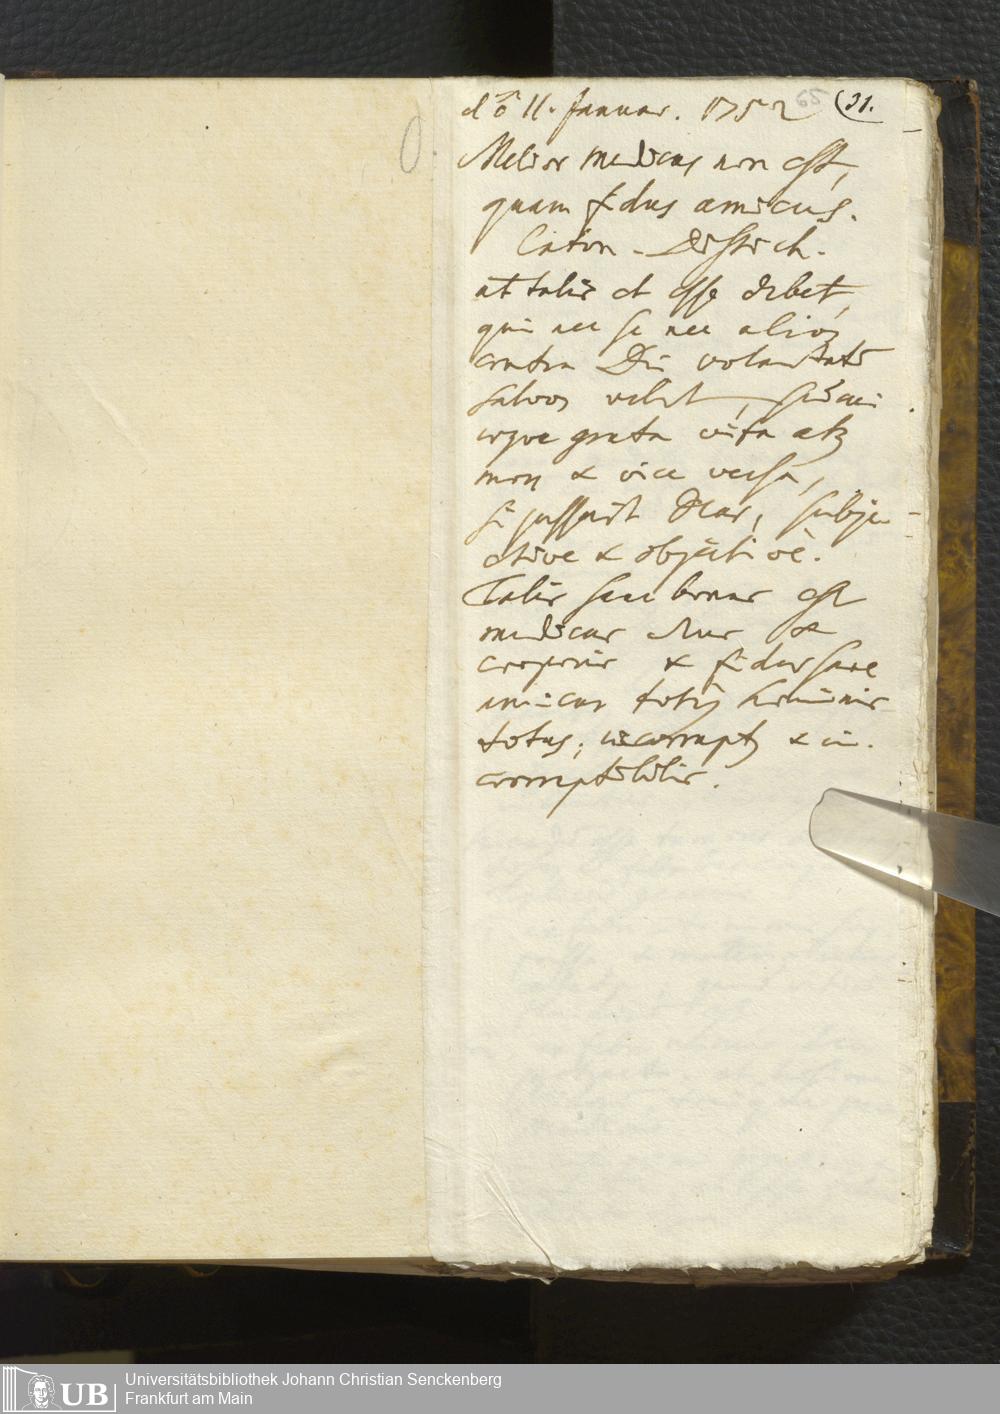 dō 11. Januar. 1752 65 (31.
Melior medicus non est,
quam fidus amicus.
Caton. Distich.
at talis et esse debet,
qui nec se nec alios
contra Dei voluntatē
salvos velit,
grata vita atq
mors & vice versa,
si jusserit Deus, subje-
ctive & objectivè.
Talis seu bonus est
medicus &
corporis & fidus sane
amicus totiq hominis
totus, incorruptq & in-
corruptibilis.
UB
Universitätsbibliothek Johann Christian Senckenberg
Frankfurt am Main